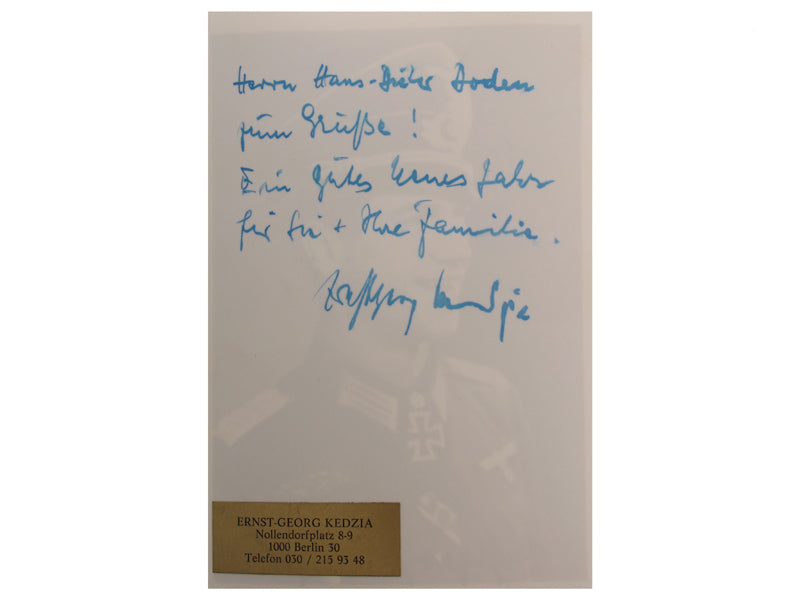 Herrn Hans-Dieter Boden
zum Gruße!
Ein gutes Neues Jahr
für Sie + Ihre Familie.
Ernst-Georg Kedzia
ERNST-GEORG KEDZIA
Nollendorfplatz 8-9
1000 Berlin 30
Telefon 030 / 215 93 48